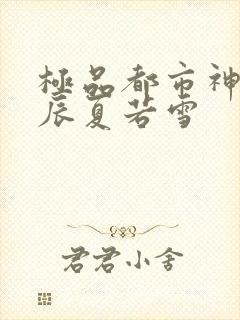 極品都市神
辰夏若雪
君君小舍